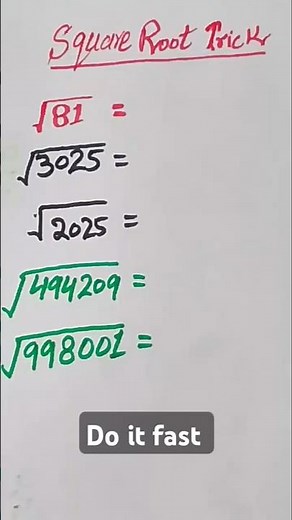 Square Root Trick
√81 =
√3025 =
√2025 =
√494209 =
√998001 =
Do it fast